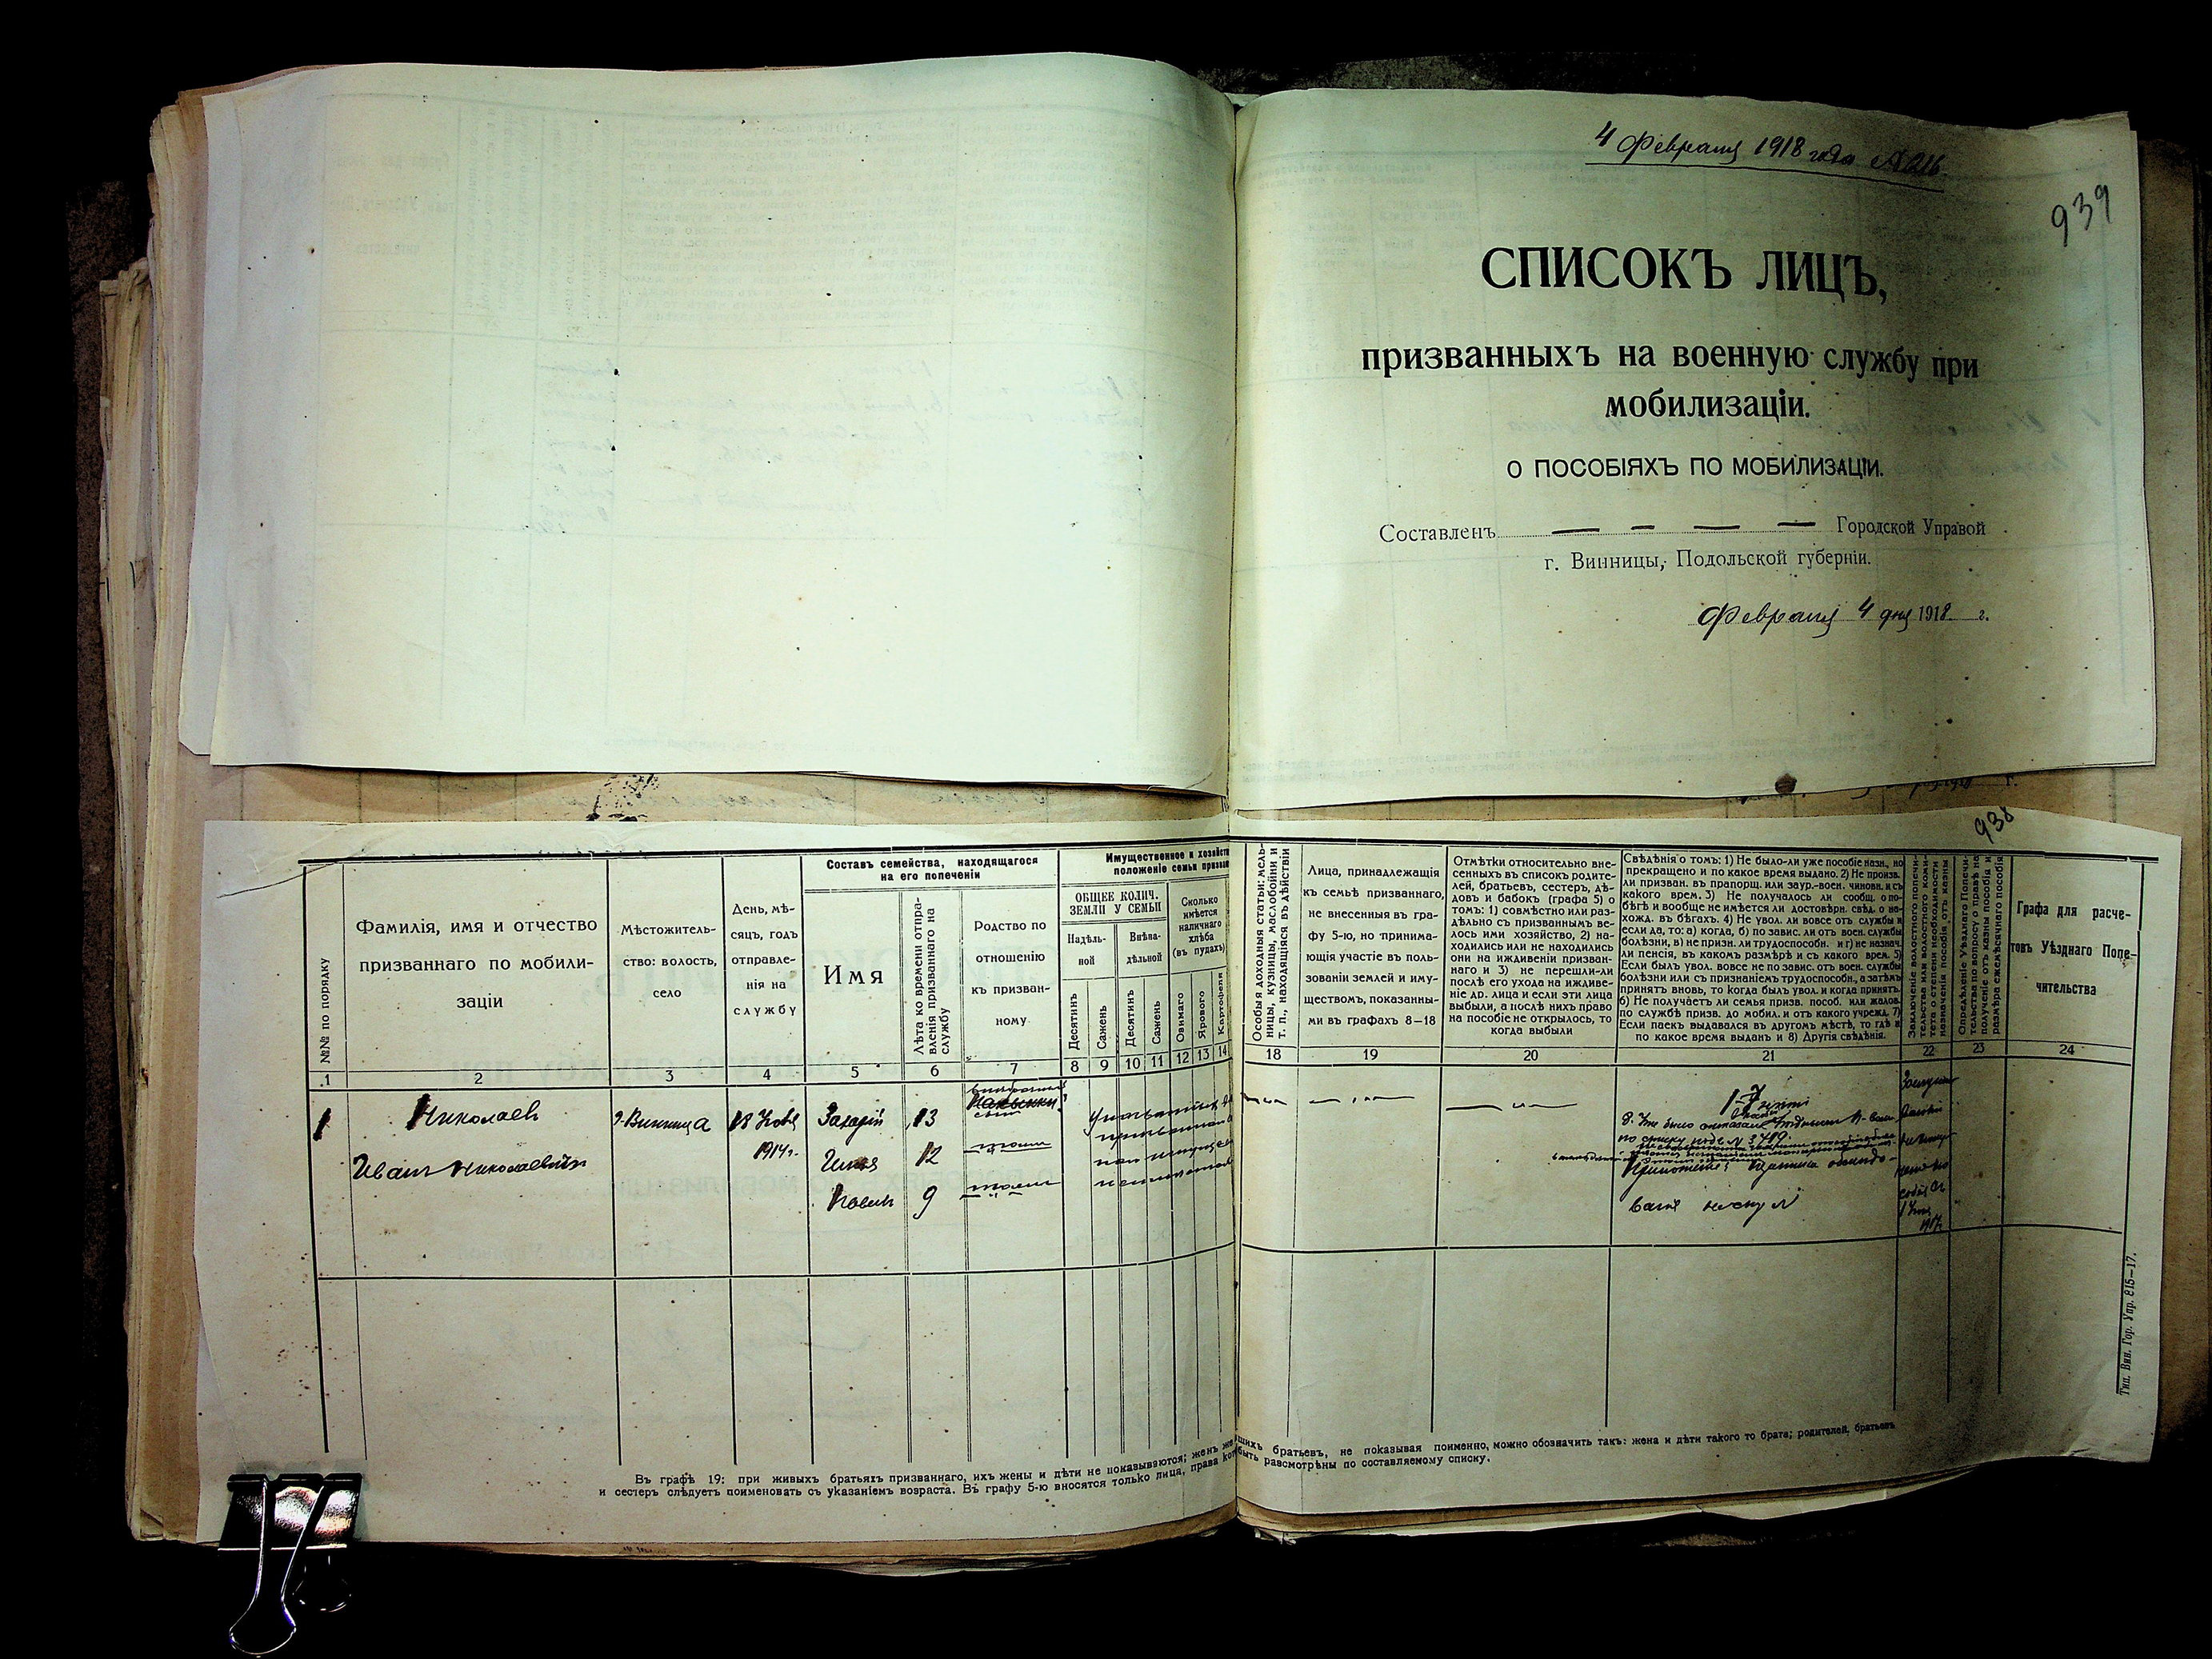 4 Февраля 1918 года № 216.
939
СПИСОКЪ ЛИЦЪ,
призванныхъ на военную службу при
мобилизаціи.
О ПОСОБІЯХЪ ПО МОБИЛИЗАЦІИ.
Составленъ — — — — Городской Управой
г. Винницы, Подольской губерніи.
Февраля 4 дня 1918 г.
938
№№ по порядку
Фамилія, имя и отчество
призваннаго по мобили-
заціи
Мѣстожитель-
ство: волость,
село
День, мѣ-
сяцъ, годъ
отправле-
нія на
службу
Составъ семейства, находящагося
на его попеченіи
Имя
Лѣта ко времени отпра-
вленія призваннаго на
службу
Родство по
отношенію
къ призван-
ному
Имущественное и хозяйств
положеніе семьи призван
ОБЩЕЕ КОЛИЧ.
ЗЕМЛИ У СЕМЬИ
Надѣль-
ной
Внѣна-
дѣльной
Десятинъ
Сажень
Десятинъ
Сажень
Сколько
имѣется
наличнаго
хлѣба
(въ пудахъ)
Озимаго
Ярового
Картофеля
Особыя доходныя статьи: мель-
ницы, кузницы, маслобойни и
т. п., находящіяся въ дѣйствіи
Лица, принадлежащія
къ семьѣ призваннаго,
не внесенныя въ гра-
фу 5-ю, но принима-
ющія участіе въ поль-
зованіи землей и иму-
ществомъ, показанны-
ми въ графахъ 8—18
Отмѣтки относительно вне-
сенныхъ въ список родите-
лей, братьевъ, сестеръ, дѣ-
довъ и бабокъ (графа 5) о
томъ: 1) совмѣстно или раз-
дѣльно съ призваннымъ ве-
лось ими хозяйство, 2) на-
ходились или не находились
они на иждивеніи призван-
наго и 3) не перешли-ли
послѣ его ухода на иждиве-
ніе др. лица и если эти лица
выбыли, а послѣ нихъ право
на пособіе не открылось, то
когда выбыли
Свѣдѣнія о томъ: 1) Не было-ли уже пособіе назн., но
прекращено и по какое время выдано. 2) Не произв.
ли призван. въ прапорщ. или заур.-воен. чиновн. и съ
какого врем. 3) Не получалось ли сообщ. о по-
бѣгѣ и вообще не имѣется ли достовѣрн. свѣд. о на-
хожд. въ бѣгахъ. 4) Не увол. ли вовсе отъ службы и
если да, то: а) когда, б) по завис. ли отъ воен. службы
болѣзни, в) не призн. ли трудоспособн. и г) не назнач.
ли пенсія, въ какомъ размѣрѣ и съ какого врем. 5)
Если былъ увол. вовсе не по завис. отъ воен. службы
болѣзни или съ признаніемъ трудоспособн., а затѣмъ
принятъ вновь, то когда былъ увол. и когда принятъ.
6) Не получаетъ ли семья призв. пособ. или жалов.
по службѣ призв. до мобил. и отъ какого учрежд. 7)
Если паекъ выдавался въ другомъ мѣстѣ, то гдѣ и
по какое время выданъ и 8) Другія свѣдѣнія.
Заключеніе волостного попечи-
тельства или волостного коми-
тета о степени необходимости
назначенія пособія отъ казны
Опредѣленіе Уѣзднаго Попечи-
тельства по вопросу о правѣ на
полученіе отъ казны пособія и
размѣра ежемѣсячнаго пособія
Графа для расче-
товъ Уѣзднаго Попе-
чительства
1 2 3 4 5 6 7 8 9 10 11 12 13 14 18 19 20 21 22 23 24
1 Николаев г. Винница 18 Ноября Захарій 13
Иван Николаевич 1914 г. 12
Павел 9
1-7
Въ графѣ 19: при живыхъ братьяхъ призваннаго, ихъ жены и дѣти не показываются; женъ же
шихъ братьевъ, не показывая поименно, можно обозначить такъ: жена и дѣти такого то брата; родителей, братьевъ
и сестеръ слѣдуетъ поименовать съ указаніемъ возраста. Въ графу 5-ю вносятся только лица, права кот
быть разсмотрѣны по составляемому списку.
Тип. Вин. Гор. Упр. 815—17.